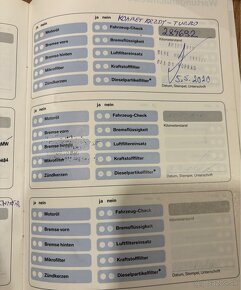 ja nein
ja nein
KOMPET REZDY - TURBO
Motoröl
Fahrzeug-Check
284692
Bremse vorn
Bremsflüssigkeit
Kilometerstand
Bremse hinten
Luftfiltereinsatz
Mikrofilter
Kraftstofffilter
5.5.2020
Zündkerzen
Dieselpartikelfilter
Datum, Stempel, Unterschrift
ja nein
ja nein
Motoröl
Fahrzeug-Check
Bremse vorn
Bremsflüssigkeit
Kilometerstand
Bremse hinten
Luftfiltereinsatz
Mikrofilter
Kraftstofffilter
Zündkerzen
Dieselpartikelfilter
Datum, Stempel, Unterschrift
ja nein
ja nein
Motoröl
Fahrzeug-Check
Bremse vorn
Bremsflüssigkeit
Kilometerstand
Bremse hinten
Luftfiltereinsatz
Mikrofilter
Kraftstofffilter
Zündkerzen
Dieselpartikelfilter
Datum, Stempel, Unterschrift